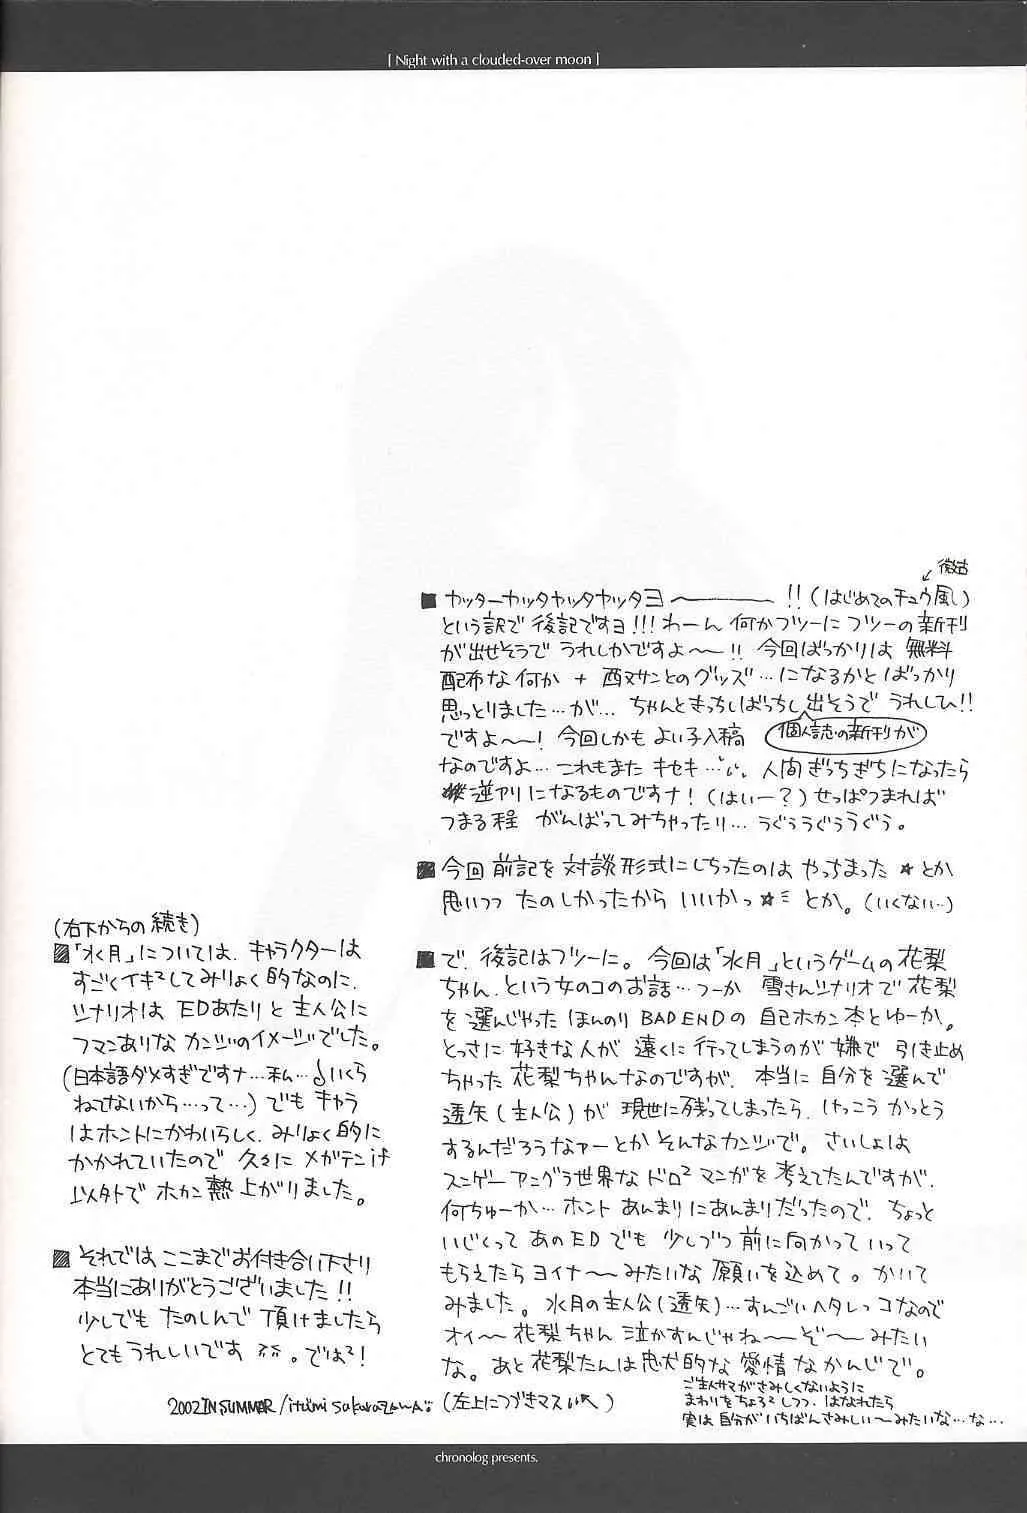 [ Night with a clouded-over moon ]
微古
■ ヤッターヤッタヤッタヤッタヨ〜―――!!(はじめてのチュウ風し)
という訳で 後記ですヨ!!! わーん 何かフツーに フツーの新刊
が出せそうで うれしかですよ〜〜!! 今回ばっかりは 無料
配布な何か + 酉ヌサンとのグッズ…になるかとばっかり
思っとりました…が… ちゃんときっちしばっちし出そうで うれしひ!!
個人誌の新刊が
ですよ〜〜! 今回しかも よい子入稿
なのですよ…これもまた キセキ… 人間 ぎっちぎちになったら
逆アリになるものですナ! (はいー?) せっぱつまれば
つまる程 がんばってみちゃったり… うぐぅうぐぅうぐぅ。
■ 今回 前記を 対談形式にしちったのは やっちまった ★ とか
思いつつ たのしかったから いいかっ★ミ とか。(いくない…)
■ で、後記はフツーに。 今回は「水月」というゲームの 花梨
ちゃん、という女のコのお話…つーか 雪さんシナリオで 花梨
を選んじゃった ほんのり BAD ENDの 自己ホカン本とゆーか。
とっさに 好きな人が 遠くに行ってしまうのが 嫌で 引き止め
ちゃった 花梨ちゃんなのですが、本当に自分を選んで
透矢(主人公)が 現世に残ってしまったら、けっこう かっとう
するんだろうなァーとか そんなカンジで。 さいしょは
スンゲーアングラ世界な ドロ²マンガを 考えてたんですが、
何ちゅーか… ホント あんまりにあんまりだったので、ちょっと
いじくって あのEDでも 少しづつ 前に向かって いって
もらえたら ヨイナ〜〜みたいな 願いを込めて。かいて
みました。 水月の主人公(透矢)…すんごいヘタレッコなので
オイ〜〜花梨ちゃん 泣かすんじゃね〜〜ぞ〜〜みたい
な。あと 花梨たんは忠犬的な 愛情 なかんじで。
ご主人サマがさみしくないように
まわりをちょろ²しつつ、はなれたら
実は自分がいちばんさみしい〜みたいな…な…
(左上につづきマス)
(右下からの続き)
■「水月」については、キャラクターは
すごくイキ²してみりょく的なのに、
シナリオは EDあたりと 主人公に
フマンありな カンジのイメージでした。
(日本語ダメすぎですナ…私…いくら
ねてないから…って…)でも キャラ
はホントにかわいらしく、みりょく的に
かかれていたので 久々に メガテン
以外で ホカン熱 上がりました。
■ それでは、ここまでお付き合い下さり
本当にありがとうございました!!
少しでも たのしんで 頂けましたら
とても うれしいです。では²!
2002 IN SUMMER/itsumi sakurazawa
chronolog presents.